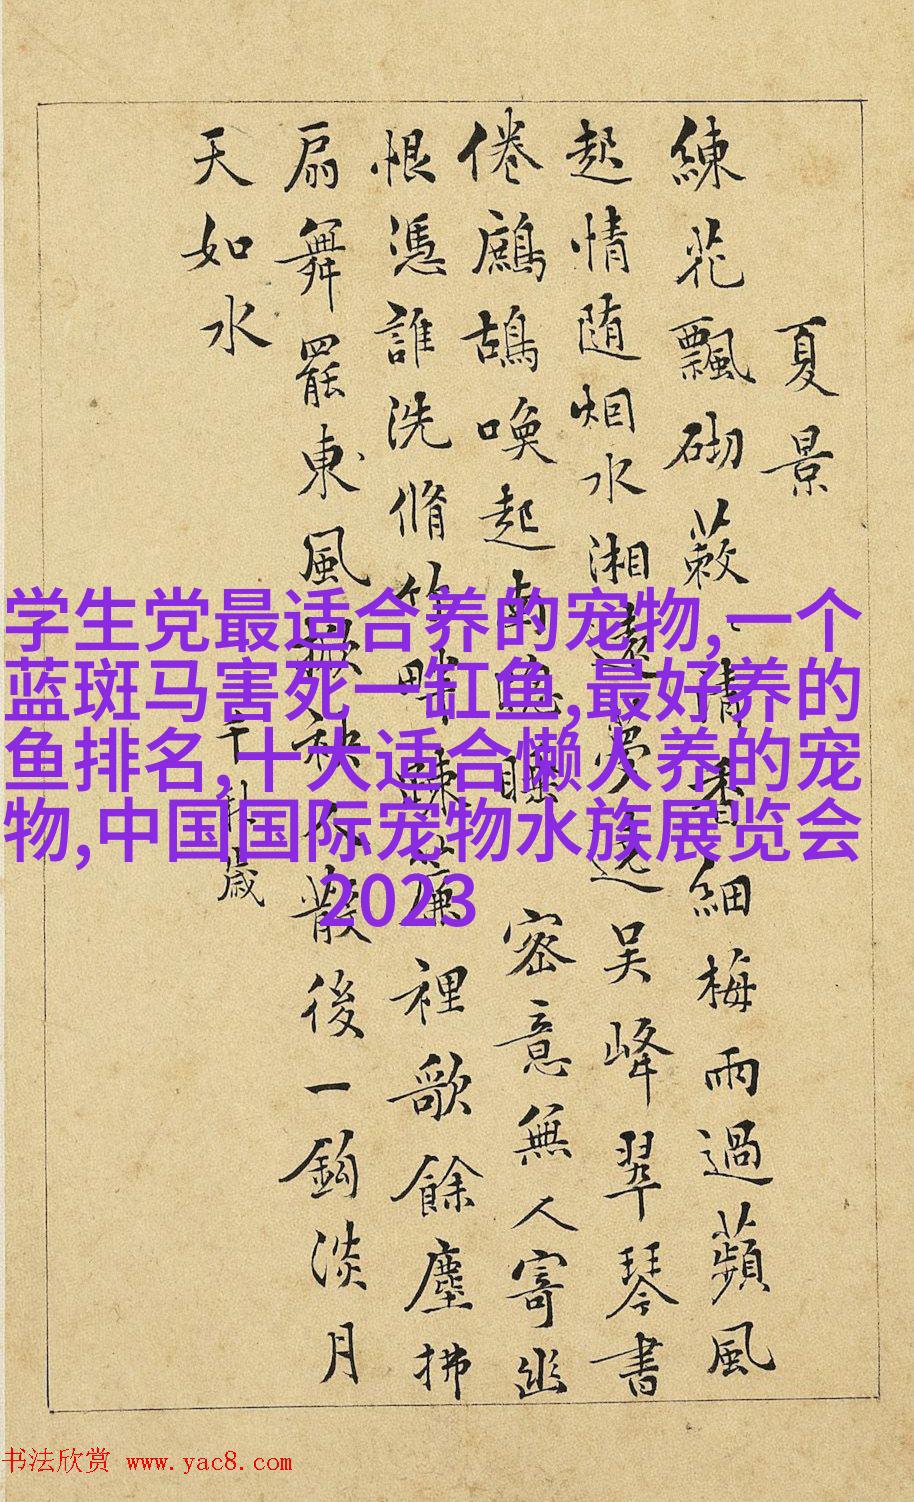 夏景
練花飄砌蔌、清香細梅雨過蘋風
起情随烟水湘遠夢遶吴峰翠琴書
倦鷓鴣喚起南窗睡密意無人寄幽
恨憑誰洗脩竹畔疎簾裡歌餘塵拂
扇舞罷東風掀袂人散後一鈎淡月
天如水
千秋歲
学生党最适合养的宠物,一个
蓝斑马害死一缸鱼,最好养的
鱼排名,十大适合懒人养的宠
物,中国国际宠物水族展览会
2023
书法欣赏 www.yac8.com